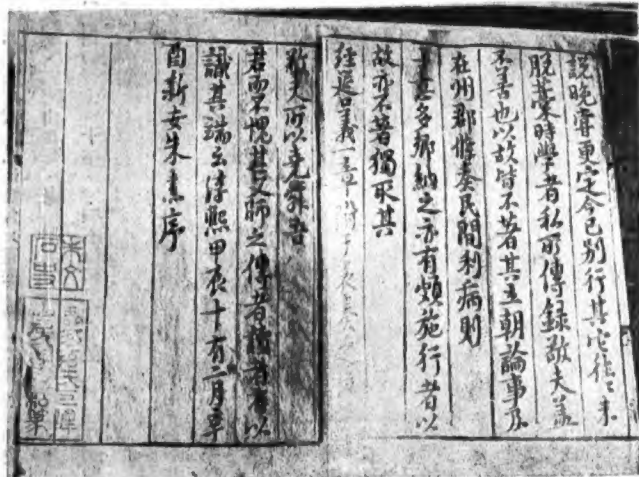 說晚嘗更定今已別行其它往〻未
脫藁時學者私所傳錄敬夫蓋
不善也以故皆不著其立朝論事及
在州郡條奏民間利病則
上意多鄉納之亦有頗施行者以
故亦不著獨取其
經筵口義一章附于表奏之
敬夫所以堯舜吾
君而不愧其父師之傳者讀者有以
識其端云淳熙甲辰十有二月辛
酉新安朱熹序